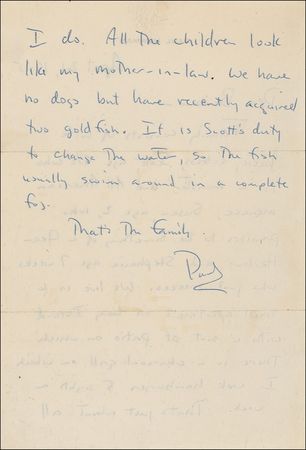 I do. All The children look
like my mother-in-law. We have
no dogs but have recently acquired
two goldfish. It is Scott's duty
to change The water, so The fish
usually swim around in a complete
fog.
That's The Family.
Paul